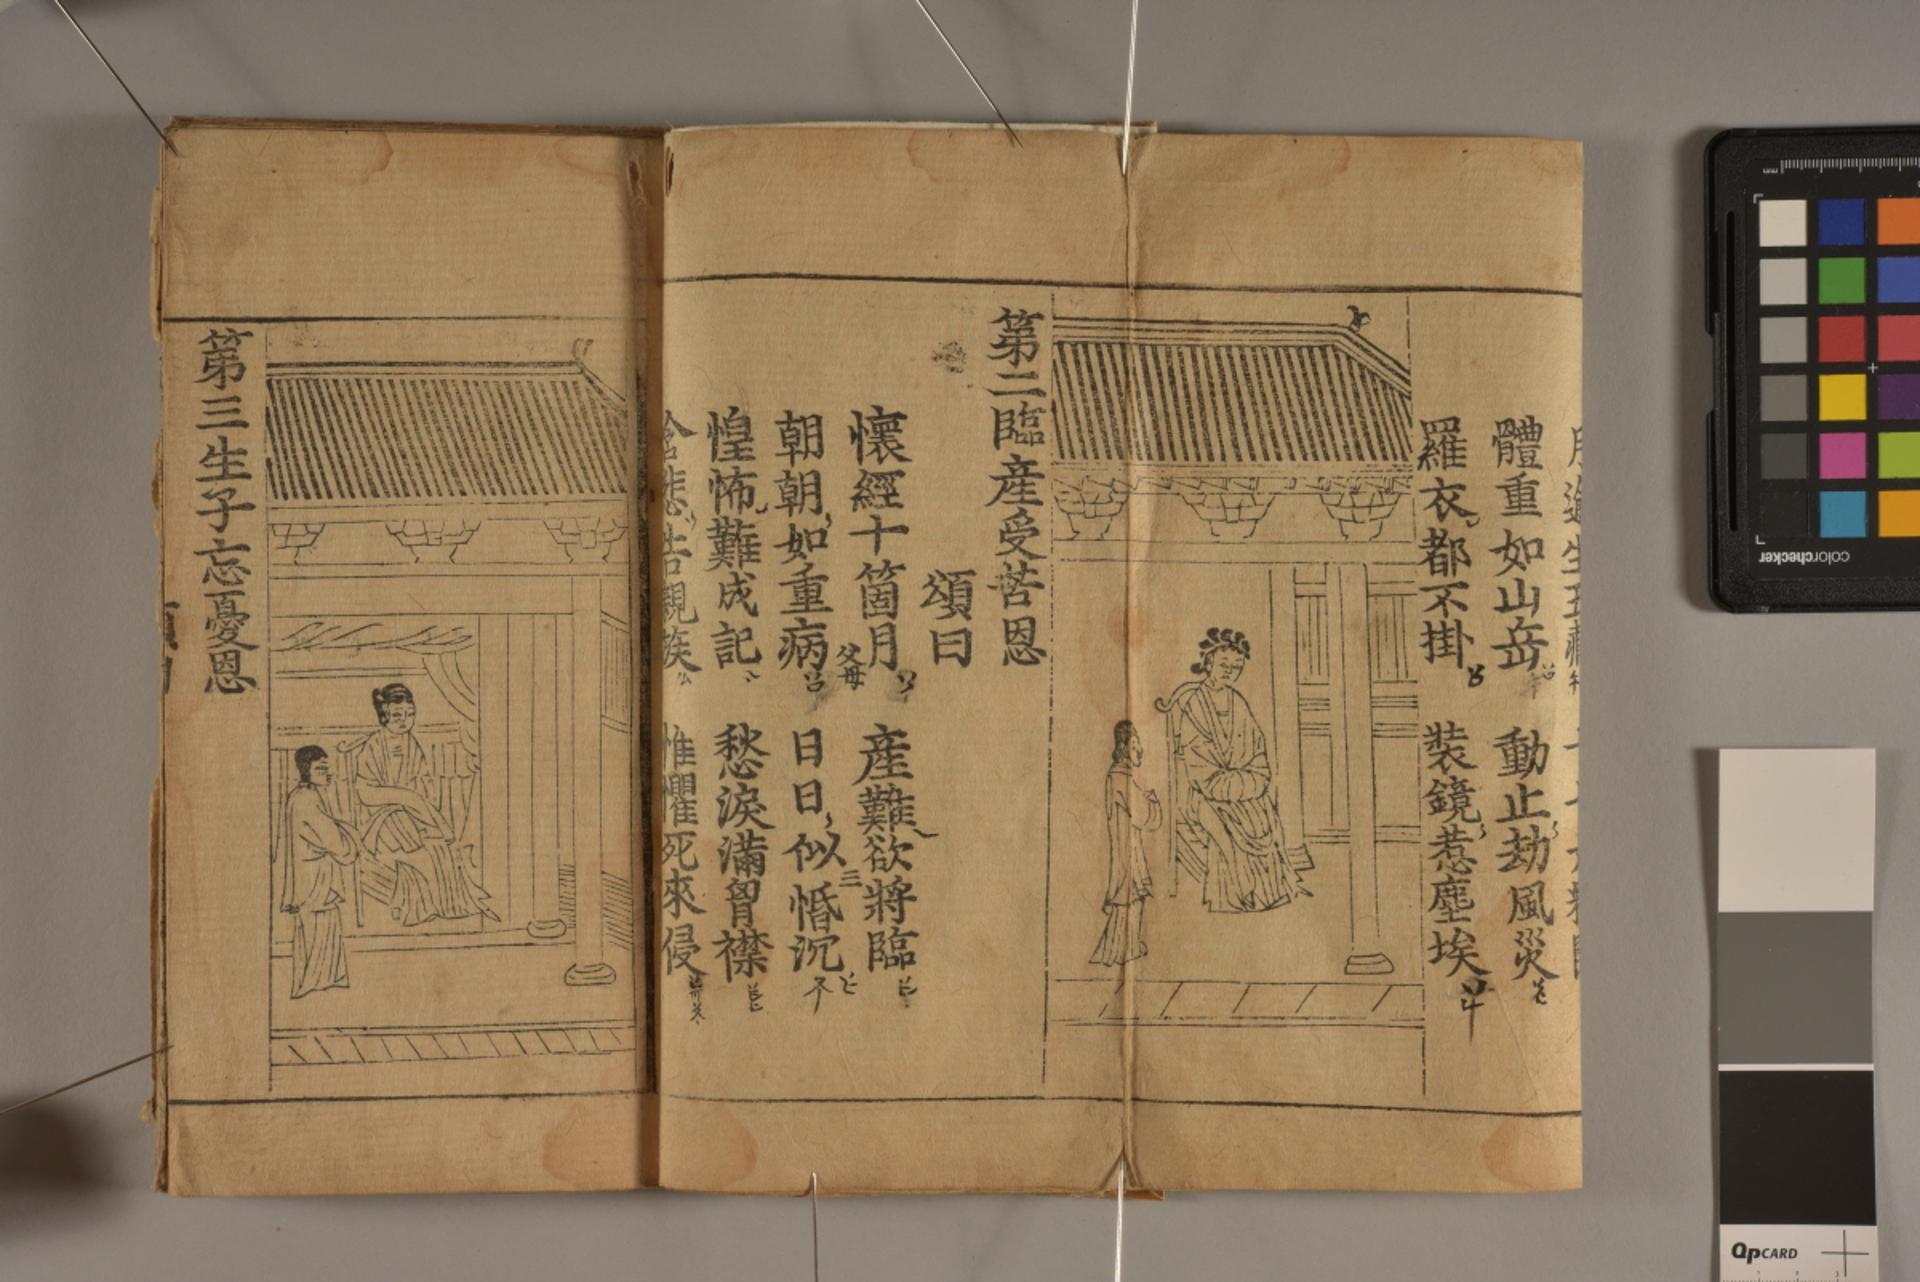 體重如山岳 動止劫風災
羅衣都不掛 裝鏡惹塵埃
第二臨産受苦恩
頌曰
懷經十箇月 産難欲將臨
父母
朝朝如重病 日日似惛沉
三
惶怖難成記 愁淚滿胷襟
含悲告親族 惟懼死來侵
第三生子忘憂恩
colorchecker
QPCARD